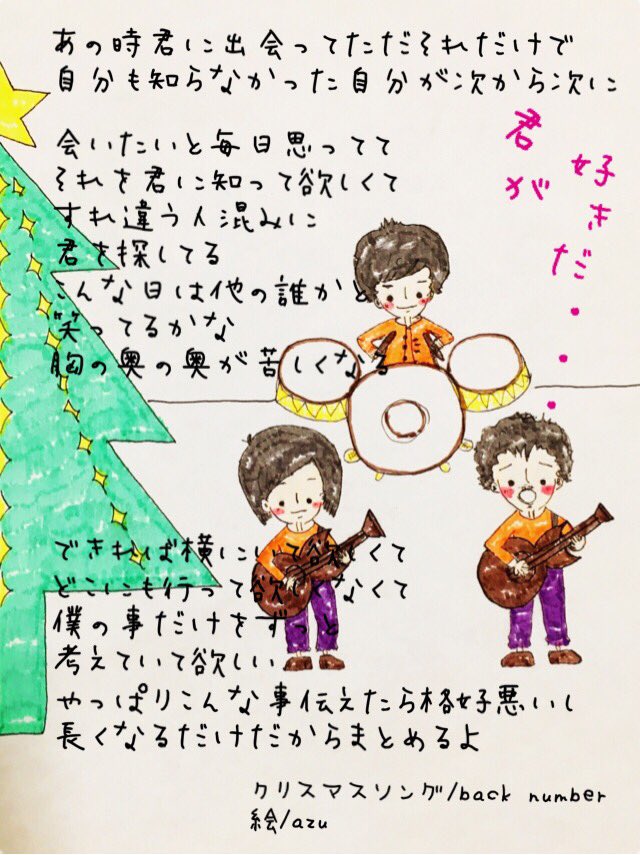 あの時君に出会ってただそれだけで
自分も知らなかった自分が次から次に
会いたいと毎日思ってて
それを君に知って欲しくて
すれ違う人混みに
君を探してる
こんな日は他の誰かと
笑ってるかな
胸の奥の奥が苦しくなる
できれば横にいて欲しくて
どこにも行って欲しくなくて
僕の事だけをずっと
考えていて欲しい
やっぱりこんな事伝えたら格好悪いし
長くなるだけだからまとめるよ
君が
好きだ・・・・
クリスマスソング/back number
絵/azu